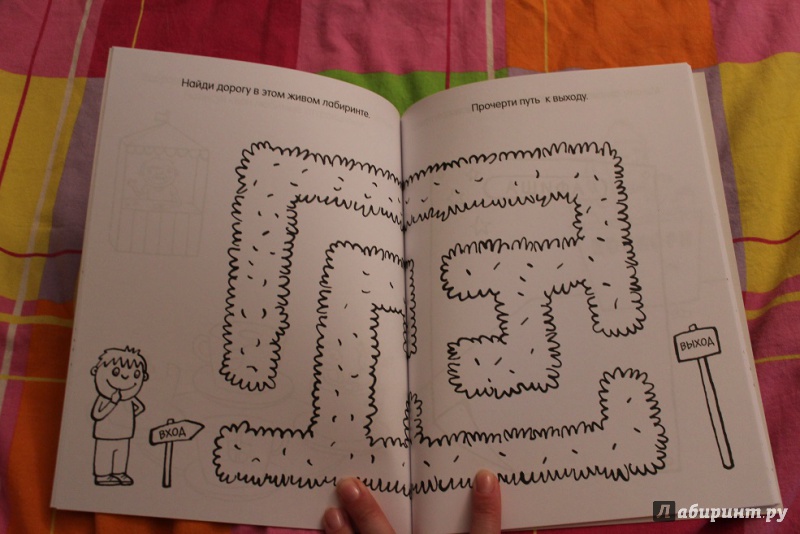 Найди дорогу в этом живом лабиринте.
Прочерти путь к выходу.
ВХОД
ВЫХОД
Лабиринт.ру